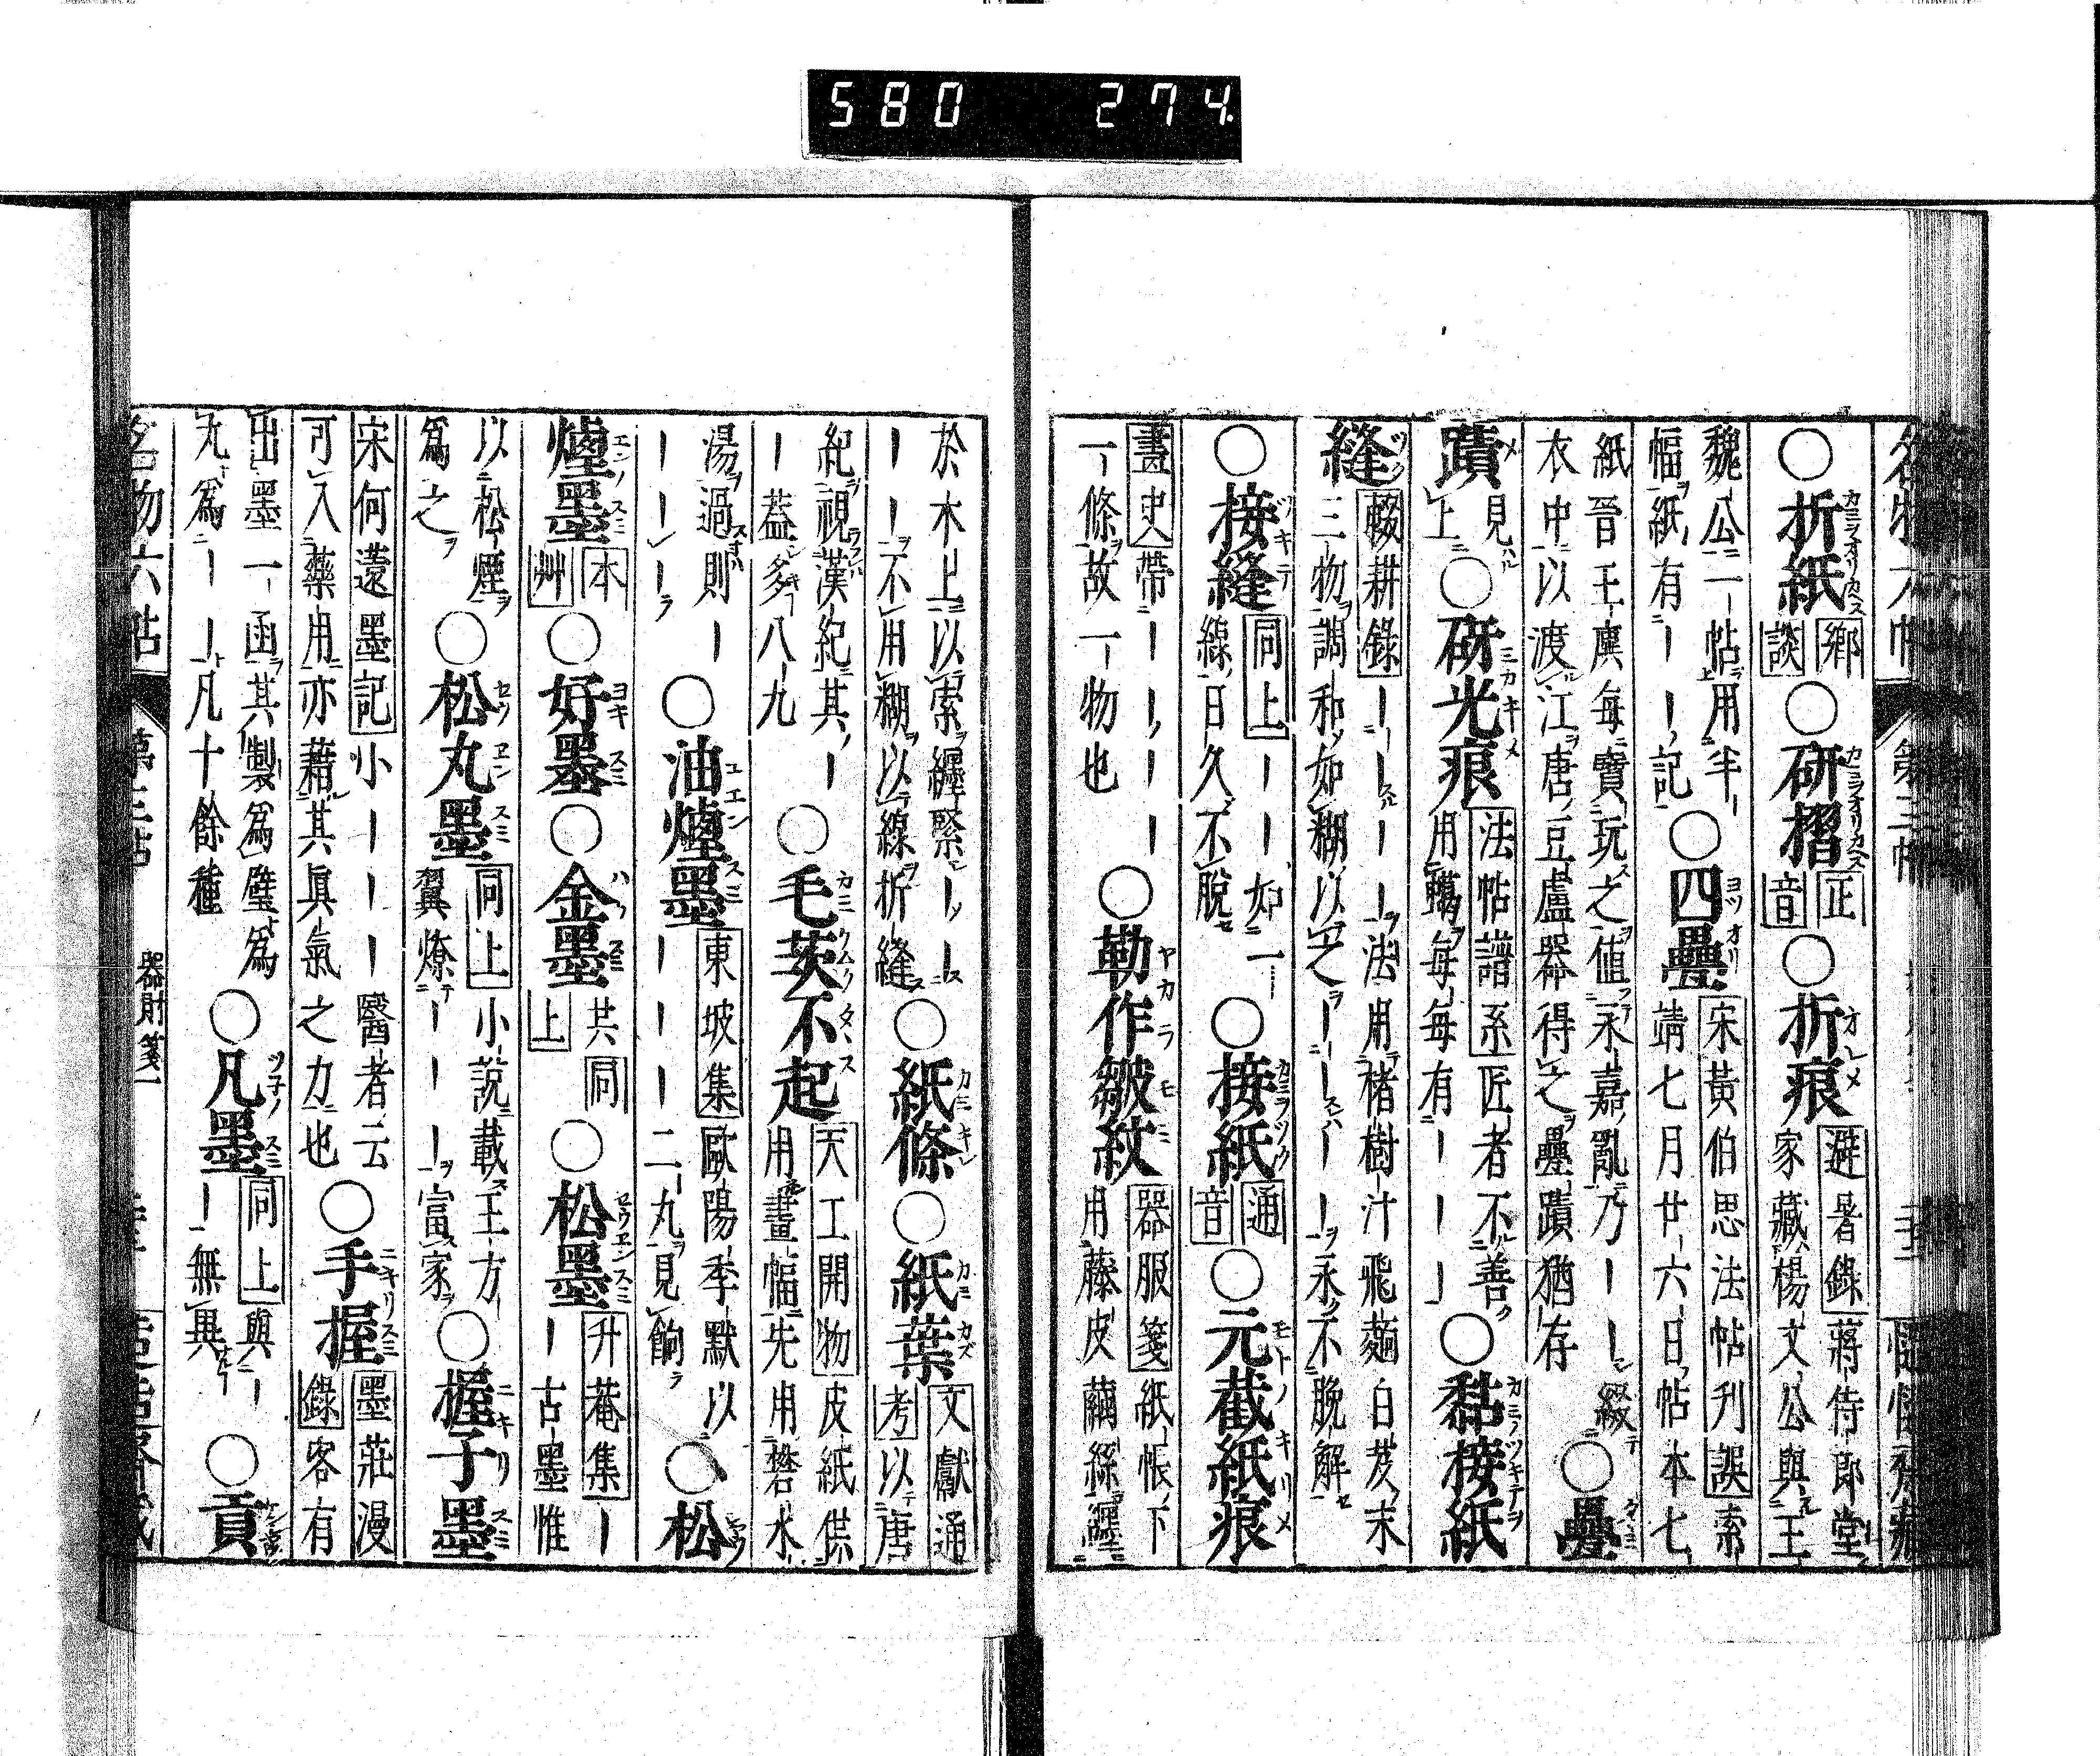 580 274
名物六帖 第三帖
○折紙 鄉談 ○研摺 正音 ○折痕 避暑錄 蔣侍郎堂家藏楊文公與王
魏公一帖用半幅紙有ーー記 ○四疊 宋黃伯思法帖刋誤 索靖七月廿六日帖本七
紙晉王廙每寶玩之值永嘉亂乃ーー綴衣中以渡江唐豆盧器得之疊蹟猶存 ○疊
蹟 見上 ○研光痕 法帖譜系 匠者不善用蠟每每有ーーー ○黏接紙
縫 輟耕錄 ーーーー法用楮樹汁飛麵白芨末三物調和如糊以之ーーーー永不脫解
○接縫 同上 ーー如一線日久不脫 ○接紙 通音 ○元截紙痕
畫史 帶ーーーー一條故一物也 ○勒作皺紋 器服箋 紙帳下用藤皮繭絲纒
於木上以索纒緊ーーーー不用糊以線折縫 ○紙條 ○紙葉 文獻通考 以唐
紀視漢紀其ーー葢多八九 ○毛茨不起 天工開物 皮紙供用畫幅先用礬水
湯過則ーーーーー ○油煙墨 東坡集 歐陽季默以ーーーー二丸見餉 ○松
煙墨 本艸 ○好墨 ○金墨 共同上 ○松墨 升菴集 ーー古墨惟
以松煙爲之 ○松丸墨 同上 小說載王方翼燎ーーー富家 ○握子墨
宋何薳墨記 小ーーーー醫者云可入藥用亦藉其眞氣之力也 ○手握 墨莊漫錄 客有
出墨一函其製爲璧爲丸爲ーー凡十餘種 ○凡墨 同上 與ーー無異 ○貢
名物六帖 第三帖 器財箋一